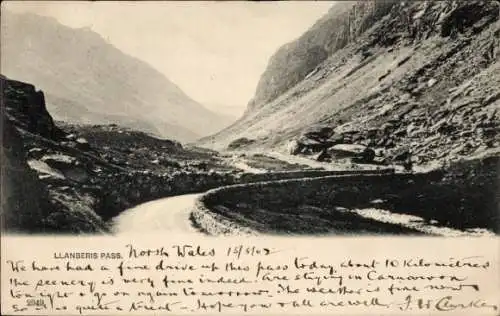 LLANBERIS PASS. North Wales 15/5/03
We have had a fine drive up this pass today. about 10 Kilometres
the scenery is very fine indeed. Are staying in Carnarvon
tonight & go on again tomorrow. The weather is fine now
so it is quite a treat - Hope you & all are well. J W Clarke.